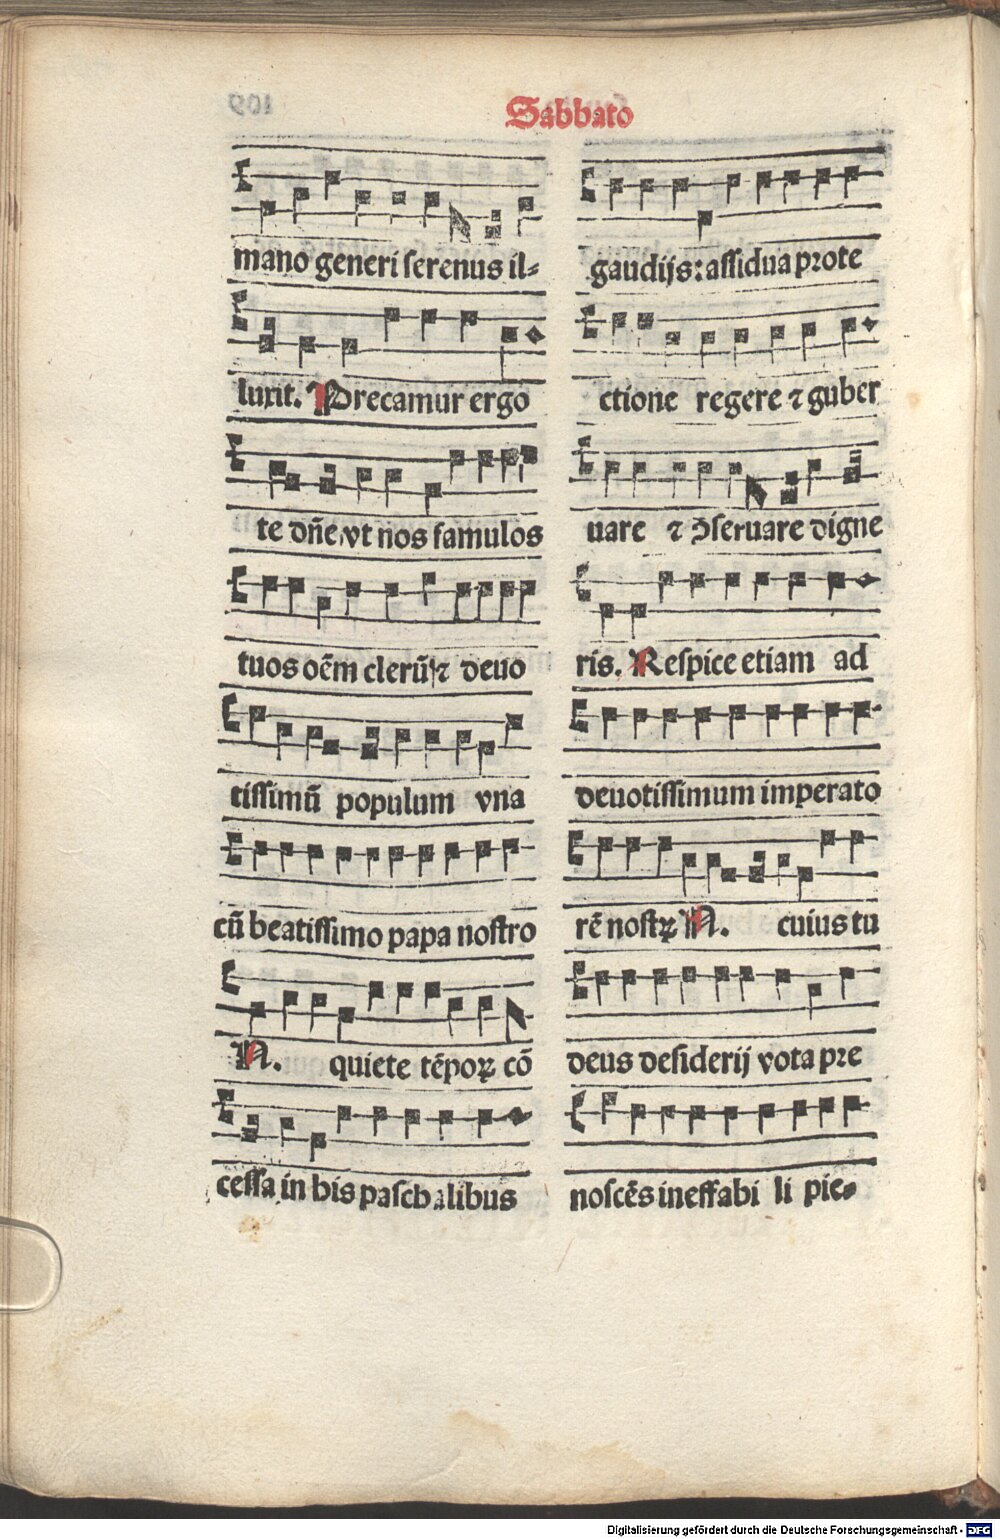 Sabbato
mano generi serenus il⸗
luxit. Precamur ergo
te dñe, vt nos famulos
tuos oēm clerū, ⁊ deuo
tissimū populum vna
cū beatissimo papa nostro
N. quiete tēpoꝝ cō
cessa in his paschalibus
gaudijs: assidua prote
ctione regere ⁊ guber
uare ⁊ ꝯseruare digne
ris. Respice etiam ad
deuotissimum imperato
rē nostrꝝ N. cuius tu
deus desiderij vota pre
noscēs ineffabi li pie⸗
Digitalisierung gefördert durch die Deutsche Forschungsgemeinschaft - DFG